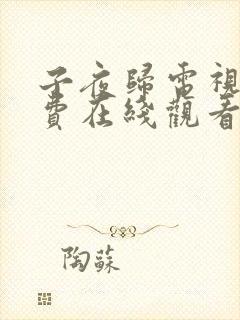 子夜歸電視
費在綫觀看
陶蘇